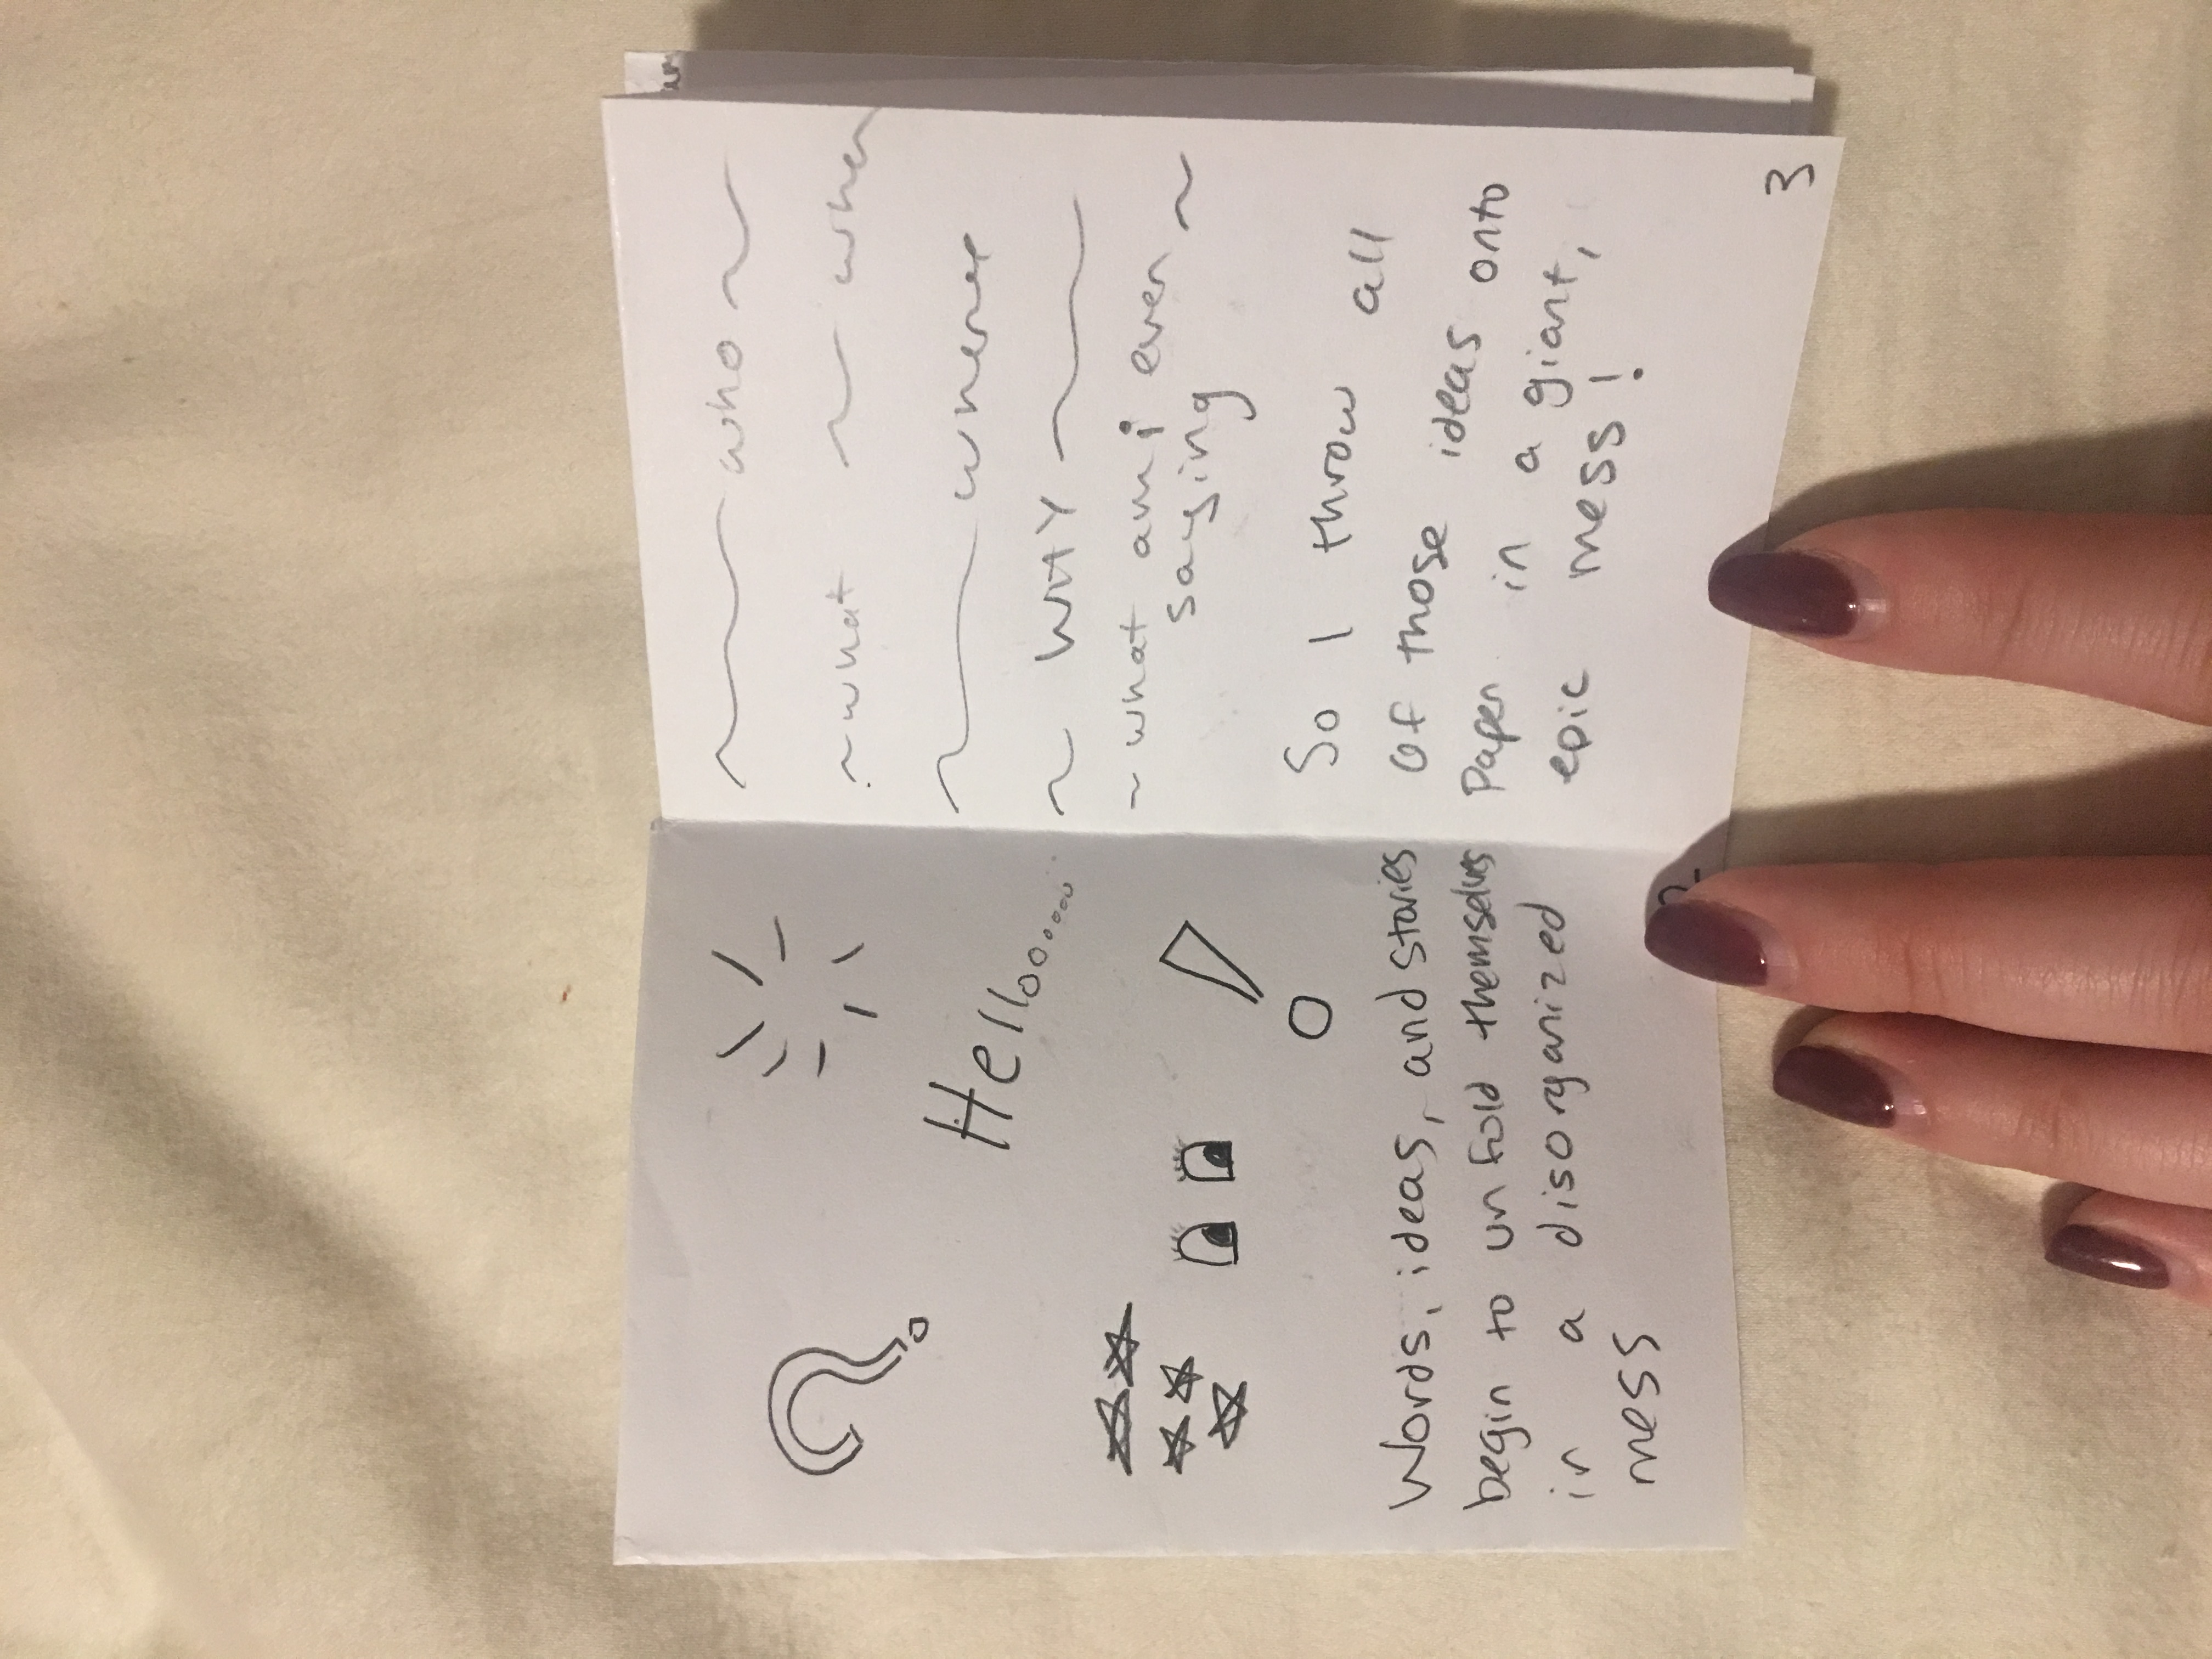 Hellooo.....
Words, ideas, and stories
begin to unfold themselves
in a disorganized
mess
2
~ who ~
~ what ~ when
~ where
~ WHY ~
~ what am i even ~
saying
So I throw all
of those ideas onto
Paper in a giant,
epic mess!
3